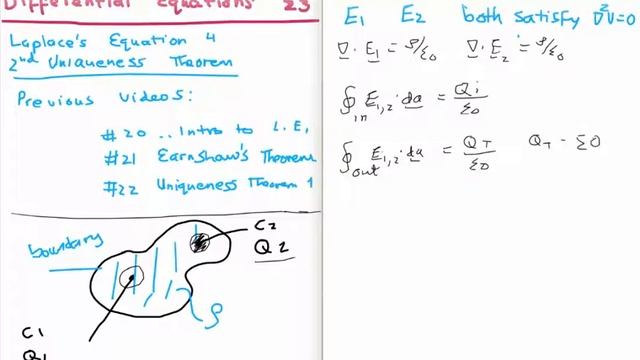 Differential Equations 23
Laplace's Equation 4
2nd Uniqueness Theorem
Previous videos:
#20 .. Intro to L.E,
#21 Earnshaw's Theorem
#22 Uniqueness Theorem 1
boundary
C2
Q2
ρ
C1
Q1
E1 E2 both satisfy ∇²V=0
∇·E1 = ρ/ε0 ∇·E2 = ρ/ε0
∮in E1,2·da = Qi/ε0
∮out E1,2·da = QT/ε0 QT - ΣQ